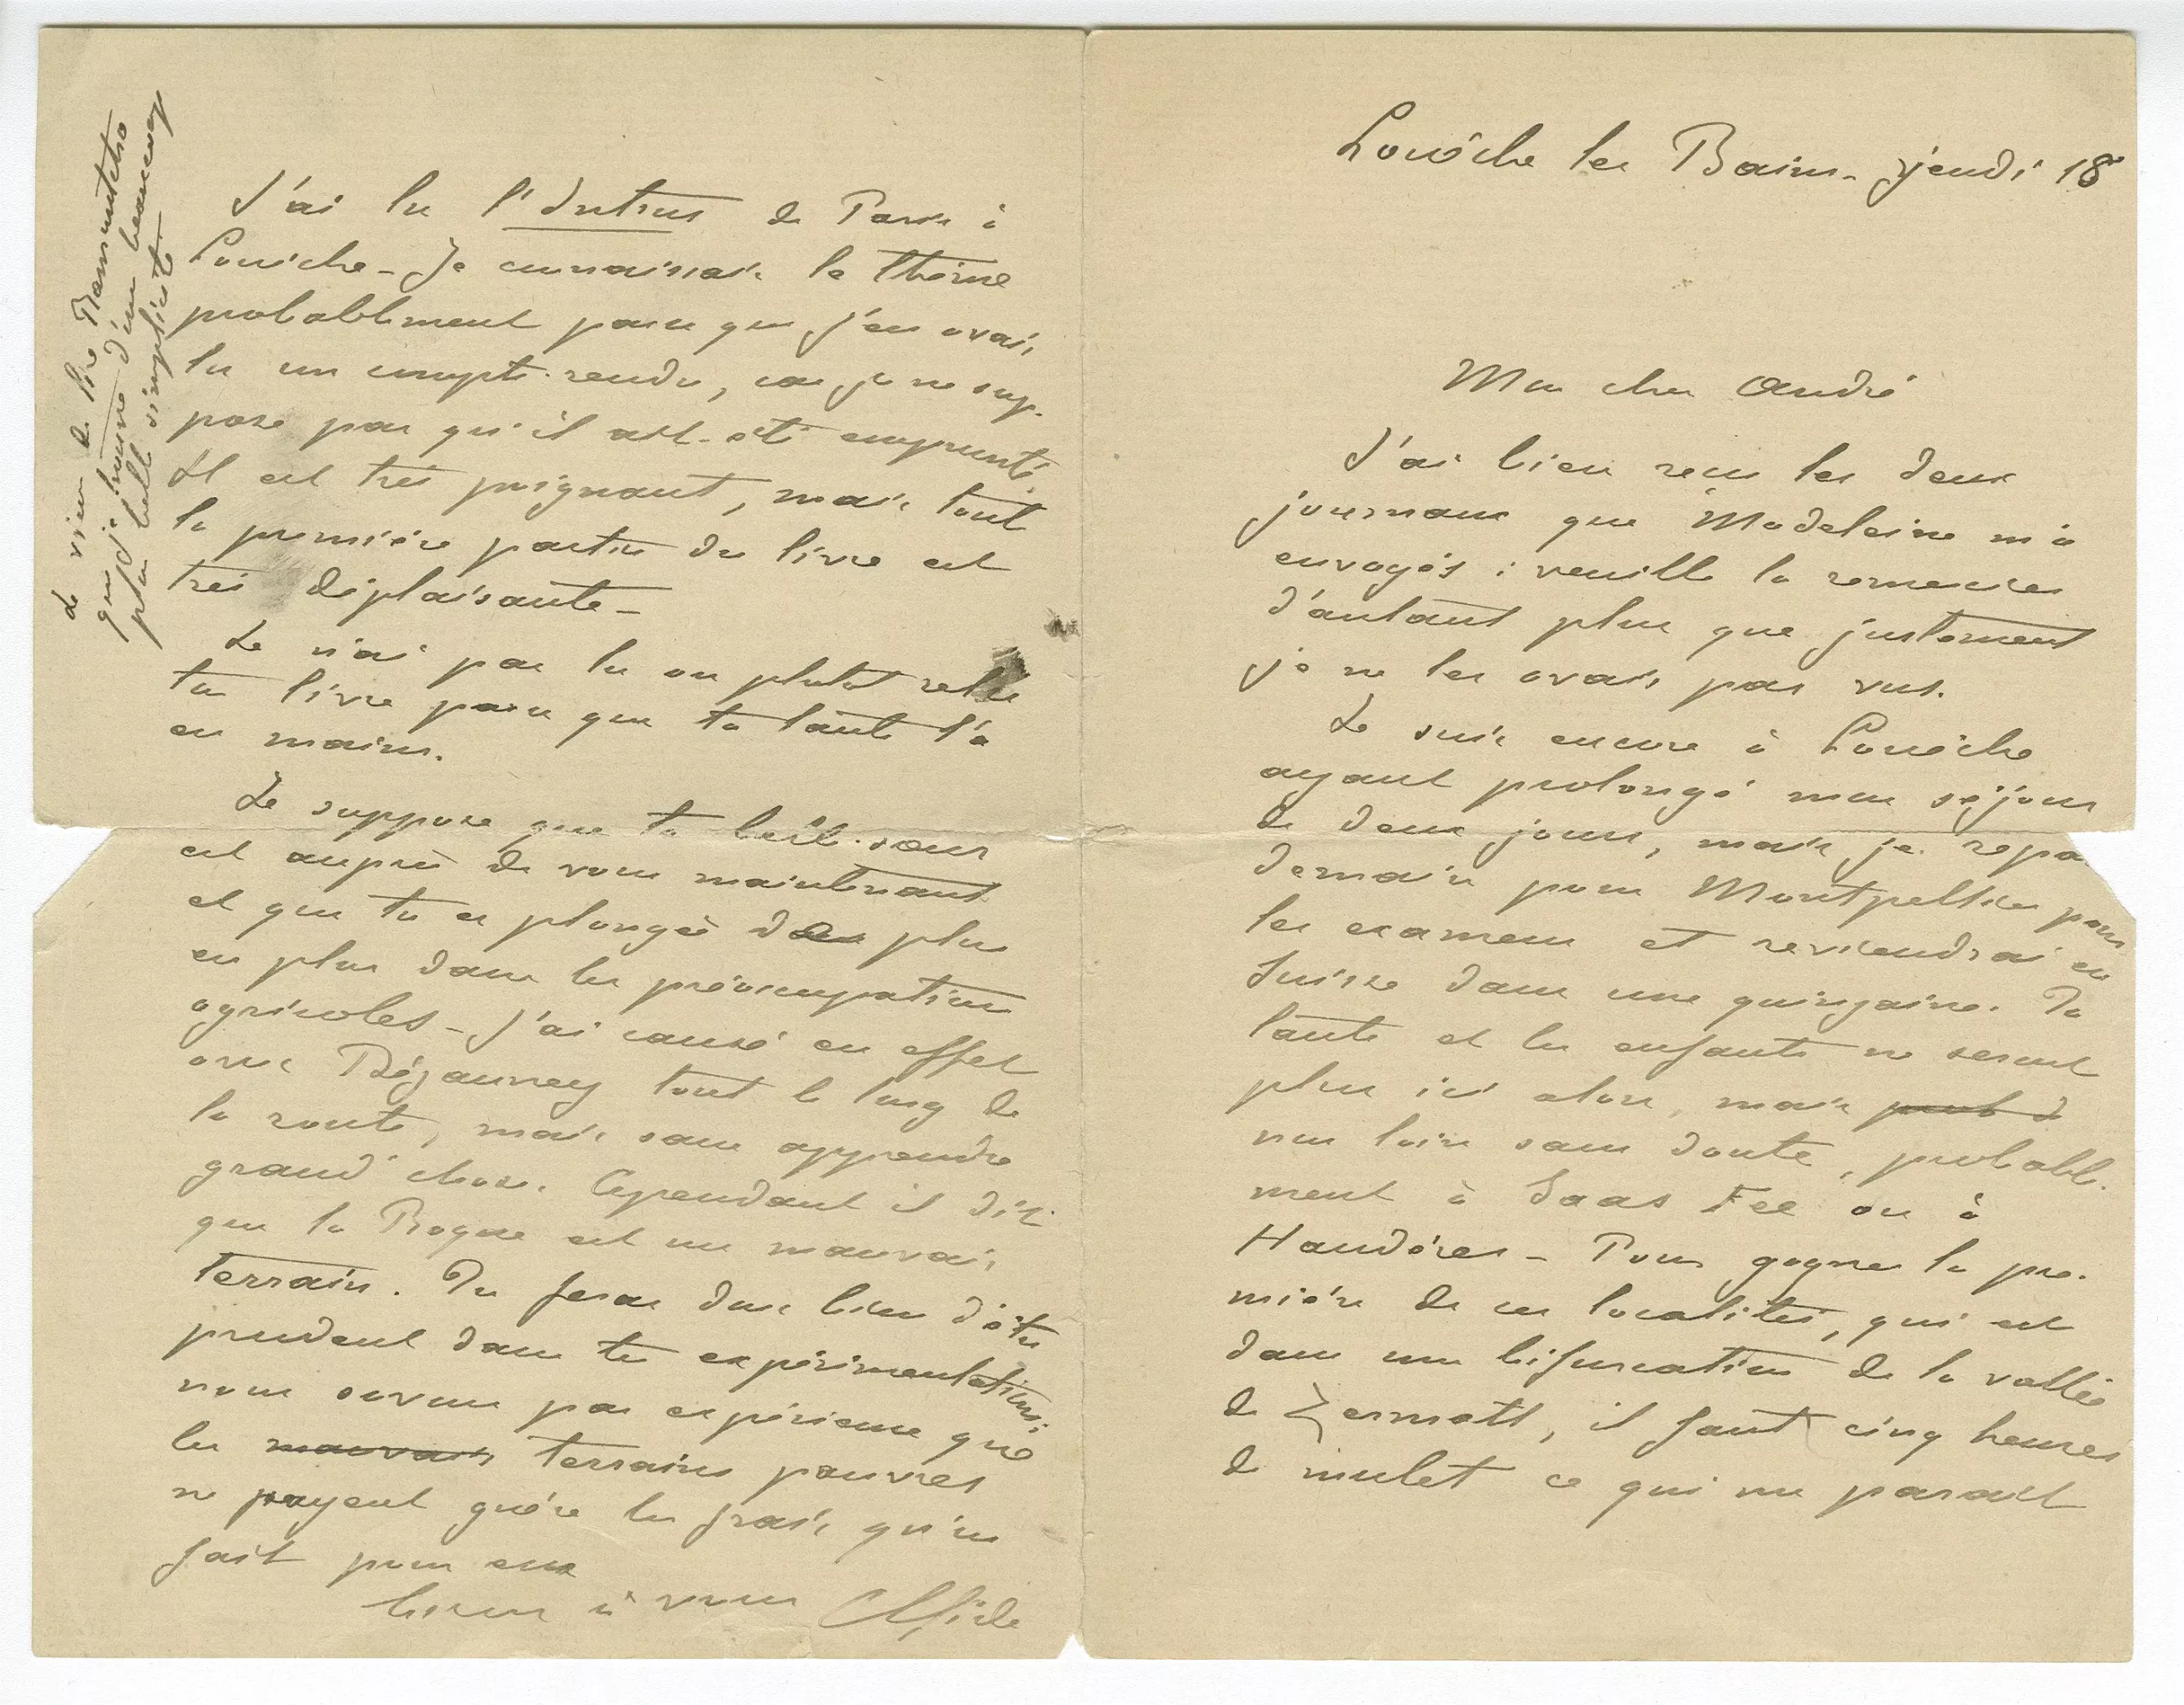 Louèche les Bains - jeudi 18
Mon cher André
J'ai bien reçu les deux
journaux que Madeleine m'a
envoyés : veuille la remercier
d'autant plus que justement
je ne les avais pas vus.
Je suis encore à Louèche
ayant prolongé mon séjour
de deux jours, mais je repa
demain pour Montpellier pour
les examens et reviendrai en
Suisse dans une quinzaine. Ta
tante et les enfants ne seront
plus ici alors, mais
non loin sans doute, probable-
ment à Saas Fee ou à
Haudères - Pour gagner la pre-
mière de ces localités, qui est
dans une bifurcation de la vallée
de Zermatt, il faut cinq heures
de mulet ce qui me parait
J'ai lu l'Intrus de Paris à
Louèche - Je connaissais le thème
probablement parce que j'en avais
lu un compte-rendu, car je ne sup-
pose pas qu'il ait été emprunté.
Il est très poignant, mais tout
la première partie du livre est
très déplaisante -
Je n'ai pas lu ou plutot relu
ton livre parce que ta tante l'a
en mains.
Je suppose que ta belle-sœur
est auprès de vous maintenant
et que tu es plongé de plus
en plus dans les préoccupations
agricoles - J'ai causé en effet
avec Régauney tout le long de
la route, mais sans apprendre
grand'chose. Cependant il dit
que la Roque est un mauvais
terrain. Tu feras donc bien d'être
prudent dans tes expérimentations.
nous savons par expérience que
les mauvais terrains pauvres
ne payent guère les frais qu'on
fait pour eux
bien à vous Ch Gide
Je viens de lire
que je trouve d'une beaucoup
plus belle simplicité